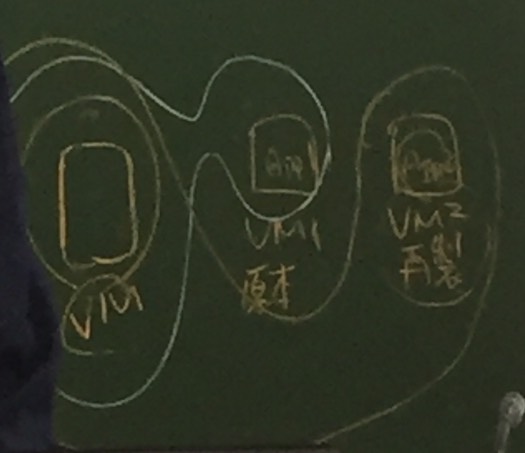 VM
VM1
原本
VM2
再製